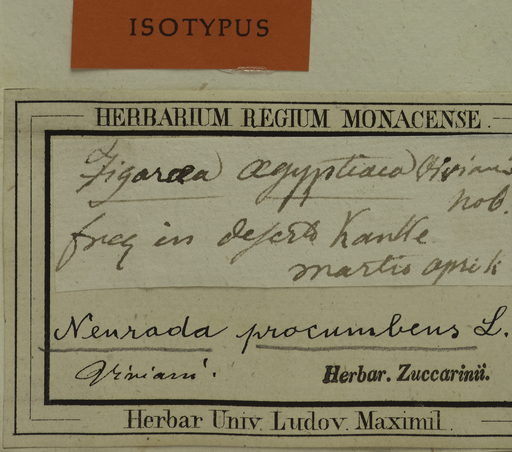 ISOTYPUS
HERBARIUM REGIUM MONACENSE.
Figaræa ægyptiaca Viviani
nob.
freq in deserto
martio aprili
Neurada procumbens L.
Viviani.
Herbar. Zuccarinii.
Herbar Univ. Ludov. Maximil.